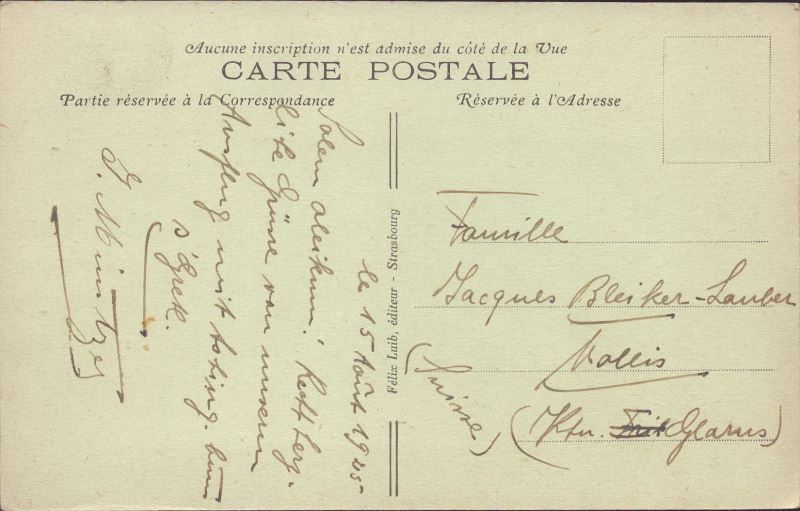 Aucune inscription n'est admise du côté de la Vue
CARTE POSTALE
Partie réservée à la Correspondance
Réservée à l'Adresse
le 15 Août 1925
Salem aleikum! Recht herz-
liche Grüsse von unserem
Ausflug mit
s'Grek.
J. Müntzer
Félix Luib, éditeur - Strasbourg
Famille
Jacques Bleiker-Lauber
Mollis
(Ktn. Glarus)
(Suisse)